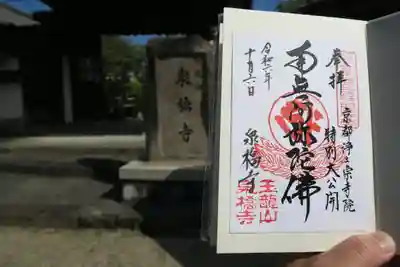 泉橋寺
奉拝
京都浄土宗寺院
特別大公開
南無阿弥陀佛
令和二年
十月六日
泉橋寺
玉龍山
泉橋寺